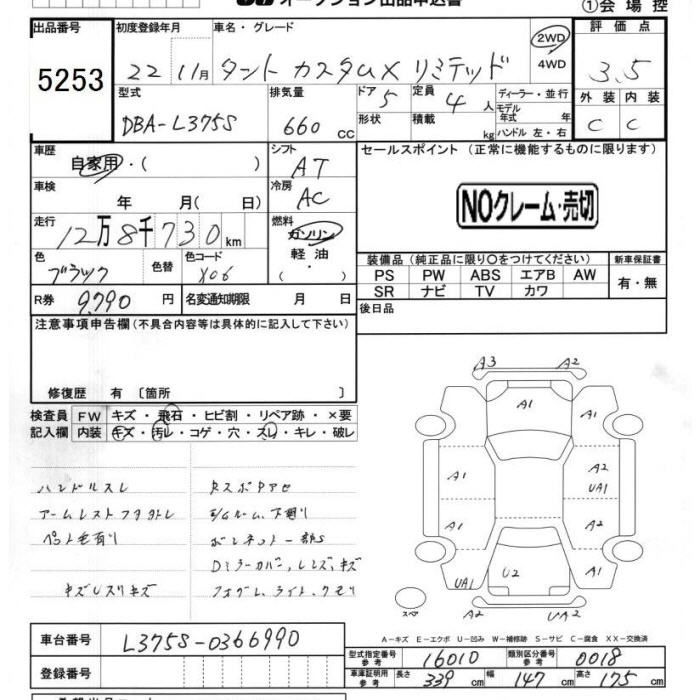 オークション出品申込書 ①会場控
出品番号 初度登録年月 車名・グレード 評価点
5253 22 11月 タント カスタムX リミテッド 2WD 4WD 3.5
型式 排気量 ドア 定員 ディーラー・並行 外装 内装
DBA-L375S 660 cc 5 4人 モデル年式 年 C C
形状 積載 kg ハンドル 左・右
車歴 シフト セールスポイント (正常に機能するものに限ります)
自家用・( ) AT
車検 冷房
年 月( 日) AC
NOクレーム・売切
走行 燃料
12万8千730km ガソリン
軽油
・
( )
色 色替 色コード
ブラック X06
装備品 (純正品に限り○をつけてください) 新車保証書
PS PW ABS エアB AW 有・無
SR ナビ TV カワ
R券 9,790円 名変通知期限 月 日
後日品
注意事項申告欄 (不具合内容等は具体的に記入して下さい)
修復歴 有 〔箇所 〕
検査員 FW キズ・飛石・ヒビ割・リペア跡・×要
記入欄 内装 キズ・汚レ・コゲ・穴・スレ・キレ・破レ
ハンドルスレ
アームレストフタ
ペット毛有り
キズUスリキズ
E/Gルーム、下廻り
ボンネット
Dミラーカバー、レンズ、キズ
フォグレ、ライト、クモリ
A3 A2
A1 A1
A1 A2
UA1
A1 A2
UA1 U2 A1
スペア UA2
A-キズ E-エクボ U-凹み W-補修跡 S-サビ C-腐食 XX-交換済
車台番号 L375S-0366990
登録番号
型式指定番号 参考 16010 類別区分番号 参考 0018
車庫証明用 参考 長さ 339cm 幅 147cm 高さ 175cm